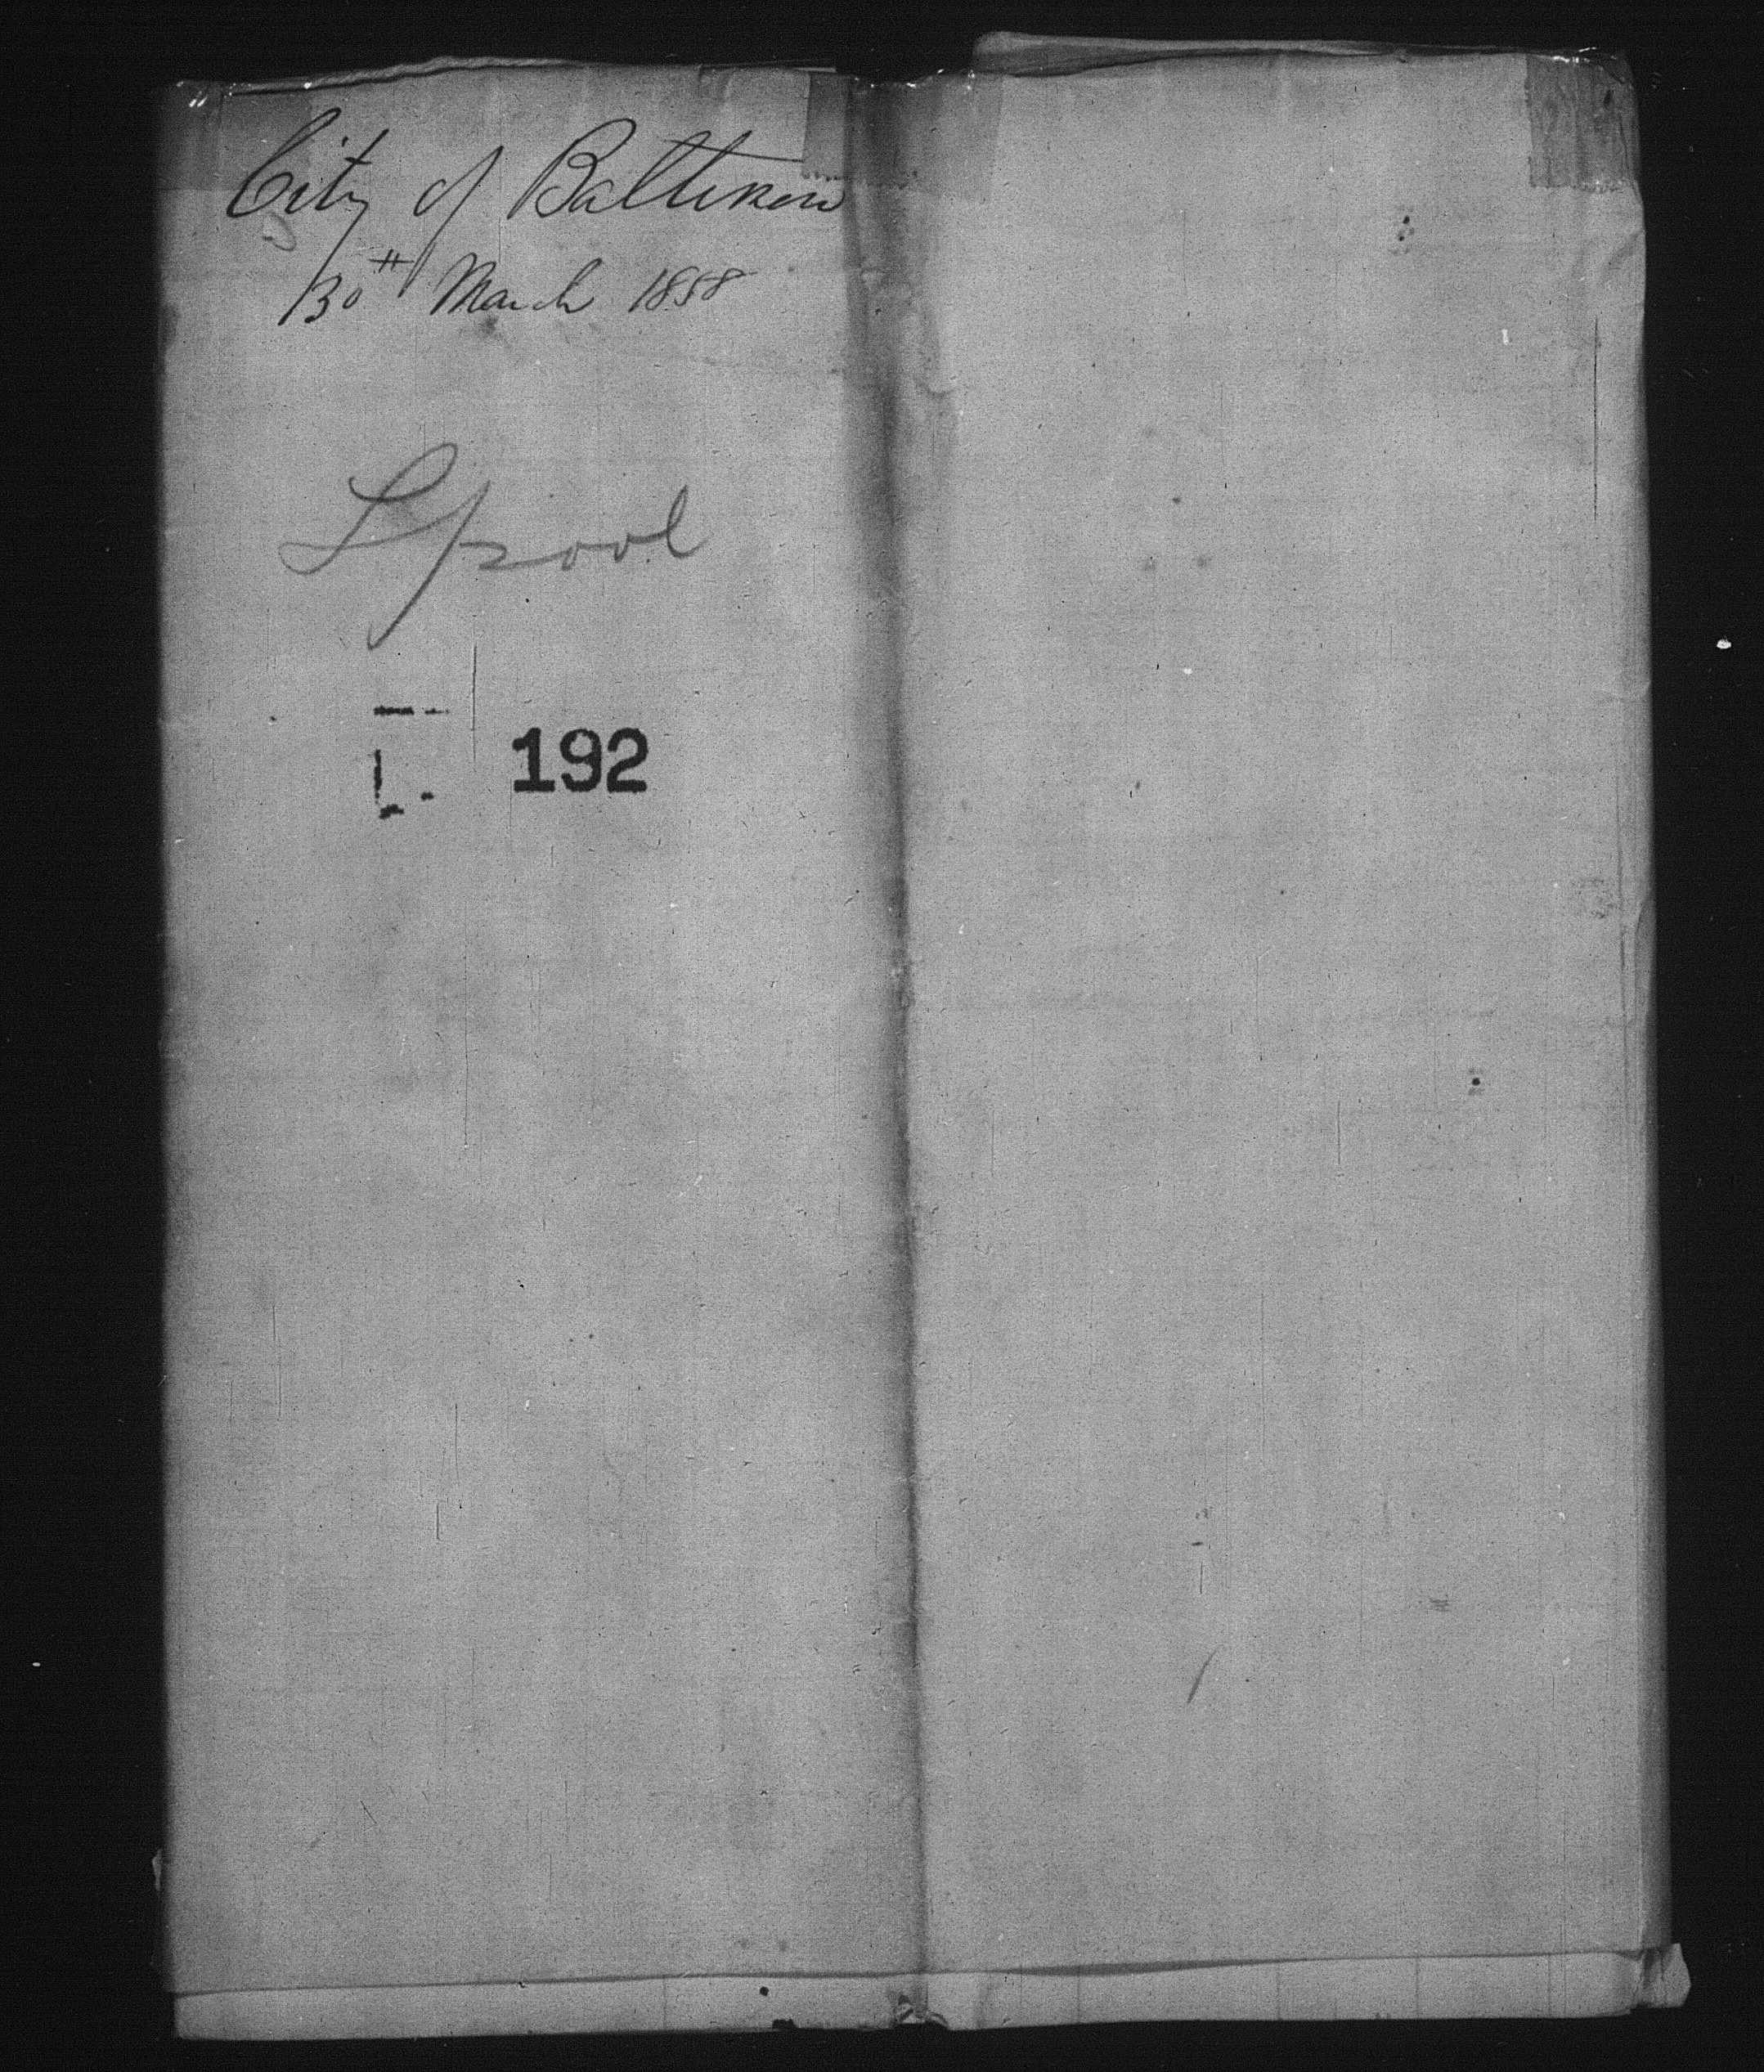 City of Baltimore
30th March 1858
Lpool
192